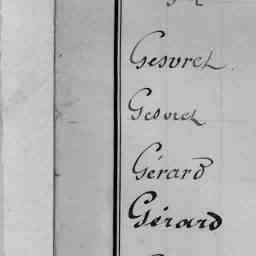 Gesvret
Gesvret
Gérard
Gérard